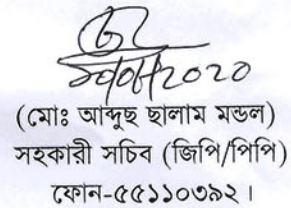 (মোঃ আব্দুছ ছালাম মন্ডল)
সহকারী সচিব (জিপি/পিপি)
ফোন-৫৫১১০৩৯২।